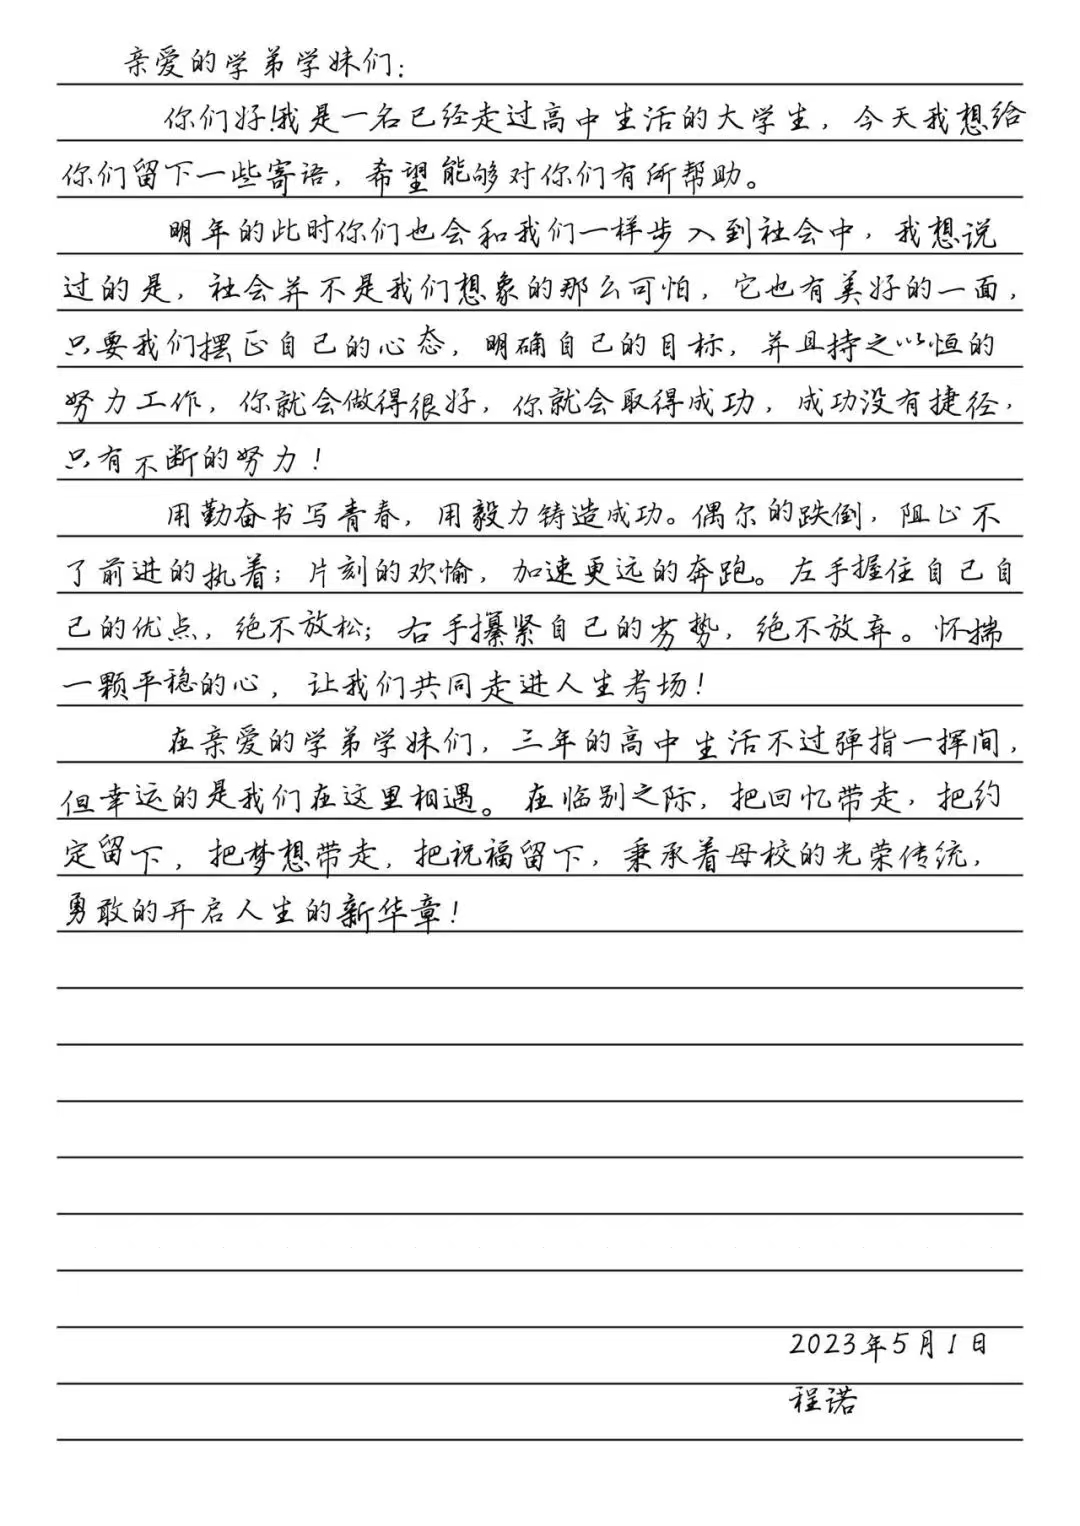 亲爱的学弟学妹们：
你们好！我是一名已经走过高中生活的大学生，今天我想给
你们留下一些寄语，希望能够对你们有所帮助。
明年的此时你们也会和我们一样步入到社会中，我想说
过的是，社会并不是我们想象的那么可怕，它也有美好的一面，
只要我们摆正自己的心态，明确自己的目标，并且持之以恒的
努力工作，你就会做得很好，你就会取得成功，成功没有捷径，
只有不断的努力！
用勤奋书写青春，用毅力铸造成功。偶尔的跌倒，阻止不
了前进的执着；片刻的欢愉，加速更远的奔跑。左手握住自己自
己的优点，绝不放松；右手攥紧自己的劣势，绝不放弃。怀揣
一颗平稳的心，让我们共同走进人生考场！
在亲爱的学弟学妹们，三年的高中生活不过弹指一挥间，
但幸运的是我们在这里相遇。在临别之际，把回忆带走，把约
定留下，把梦想带走，把祝福留下，秉承着母校的光荣传统，
勇敢的开启人生的新华章！
2023年5月1日
程诺